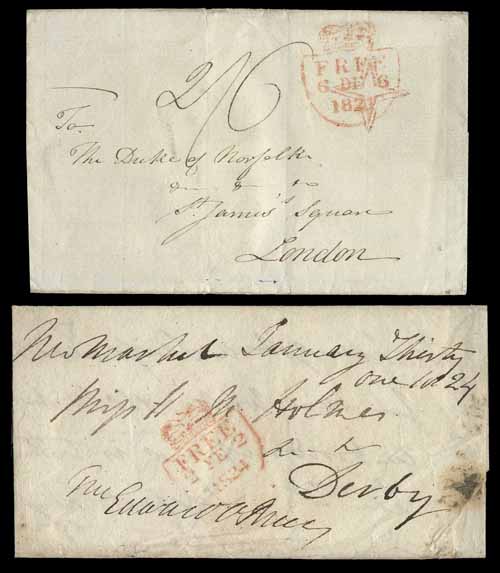 2/6
FREE
6 DE 6
1821
To
The Duke of Norfolk
&c &c &c
St. James's Square
London
Newmarket January Thirty
one 1824
Miss H M Holmes
&c &c
Derby
FREE
FE 2
1824